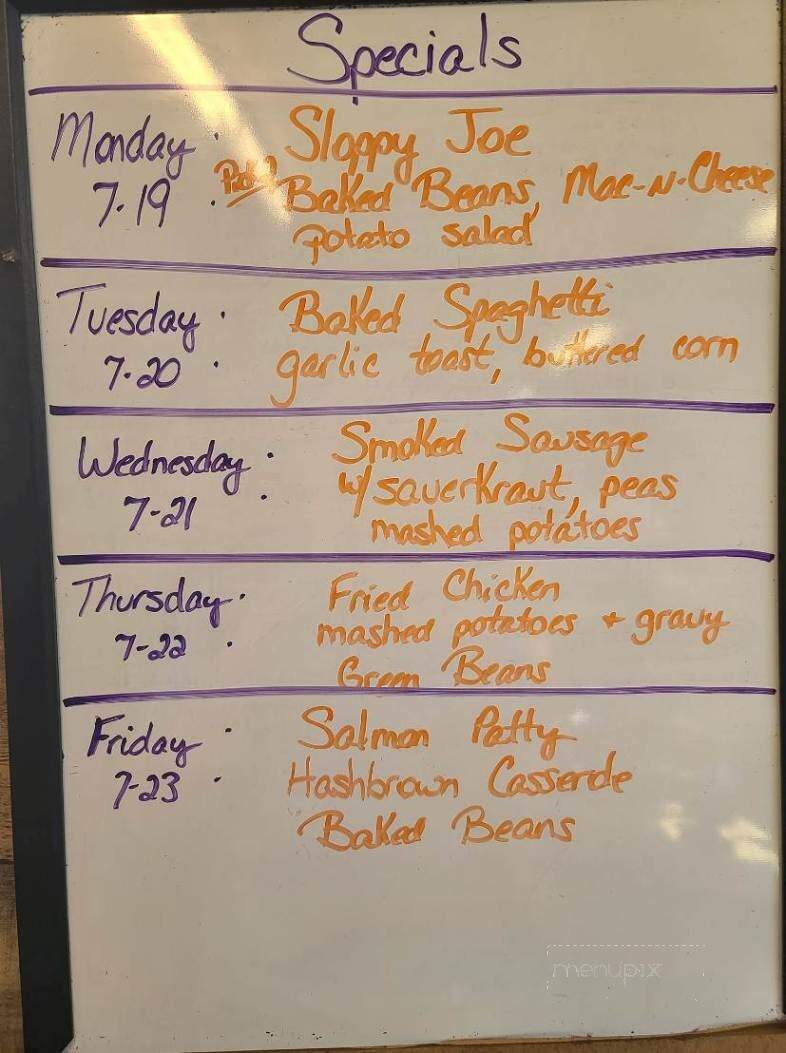 Specials
Monday :
7-19
Sloppy Joe
Pick 2 Baked Beans, Mac-N-Cheese
potato salad
Tuesday :
7-20
Baked Spaghetti
garlic toast, buttered corn
Wednesday :
7-21
Smoked Sausage
w/ sauerkraut, peas
mashed potatoes
Thursday :
7-22
Fried Chicken
mashed potatoes + gravy
Green Beans
Friday :
7-23
Salmon Patty
Hashbrown Casserole
Baked Beans
menupix